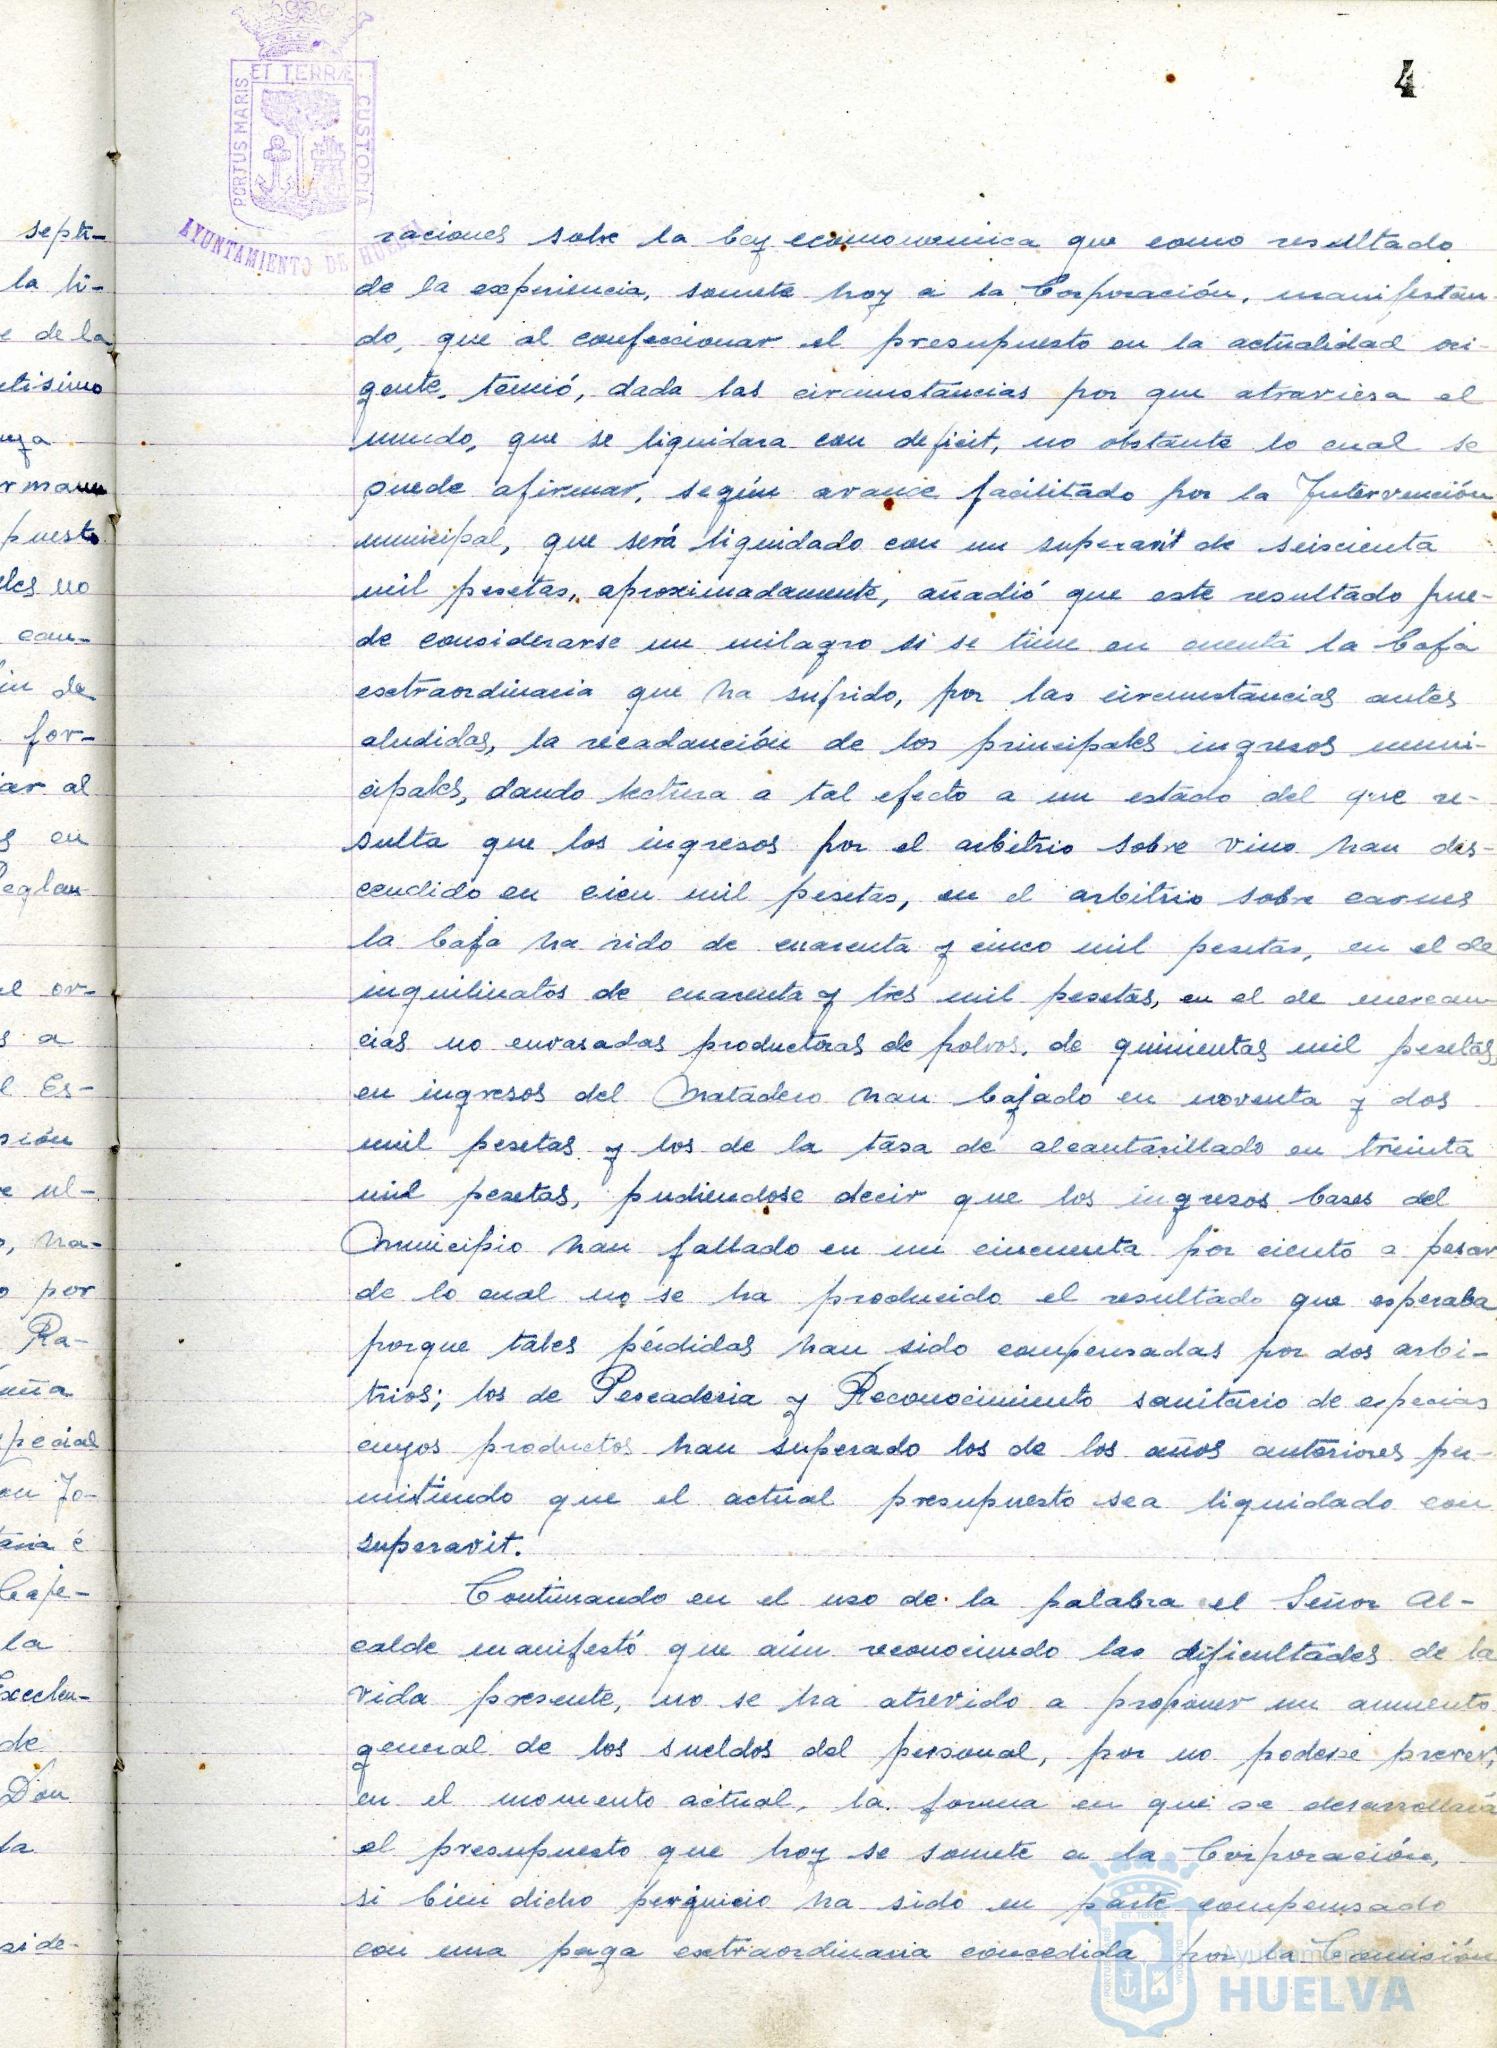 PORTUS MARIS ET TERRÆ CUSTODIA
AYUNTAMIENTO DE HUELVA
4
septi-
la li-
e de la
ntisimo
nza
rman
puesto
eles no
can-
in de
for-
iar al
s en
Reglan-
l or-
s a
l Es-
sión
e ul-
o, ha-
o por
Ra-
uña
special
on Jo-
taria é
Caje-
la
Excelen-
de
Don
la
side-
raciones sobre la ley economomica que como resultado
de la experiencia, somete hoy a la Corporación, manifestan-
do, que al confeccionar el presupuesto en la actualidad vi-
gente, temió, dada las circunstancias por que atraviesa el
mundo, que se liquidara con deficit, no obstante lo cual se
puede afirmar, según avance facilitado por la Intervención
municipal, que será liquidado con un superavit de seiscienta
mil pesetas, aproximadamente, añadió que este resultado pue-
de considerarse un milagro si se tiene en cuenta la baja
extraordinaria que ha sufrido, por las circunstancias antes
aludidas, la recadanción de los principales ingresos muni-
cipales, dando lectura a tal efecto a un estado del que re-
sulta que los ingresos por el arbitrio sobre vino han des-
cendido en cien mil pesetas, en el arbitrio sobre carnes
la baja ha sido de cuarenta y cinco mil pesetas, en el de
inquilinatos de cuarenta y tres mil pesetas, en el de mercan-
cias no envasadas productoras de polvos, de quinientas mil pesetas,
en ingresos del Matadero han bajado en noventa y dos
mil pesetas y los de la tasa de alcantarillado en treinta
mil pesetas, pudiendose decir que los ingresos bases del
Municipio han fallado en un cincuenta por ciento a pesar
de lo cual no se ha producido el resultado que esperaba
porque tales pérdidas han sido compensadas por dos arbi-
trios; los de Pescaderia y Reconocimiento sanitario de especias
cuyos productos han superado los de los años anteriores per-
mitiendo que el actual presupuesto sea liquidado con
superavit.
Continuando en el uso de la palabra el Señor Al-
calde manifestó que aún reconociendo las dificultades de la
vida presente, no se ha atrevido a proponer un aumento
general de los sueldos del personal, por no poderse prever,
en el momento actual, la forma en que se desarrollará
el presupuesto que hoy se somete a la Corporación,
si bien dicho perjuicio ha sido en parte compensado
con una paga extraordinaria concedida por la Comisión
Ayuntamiento
HUELVA